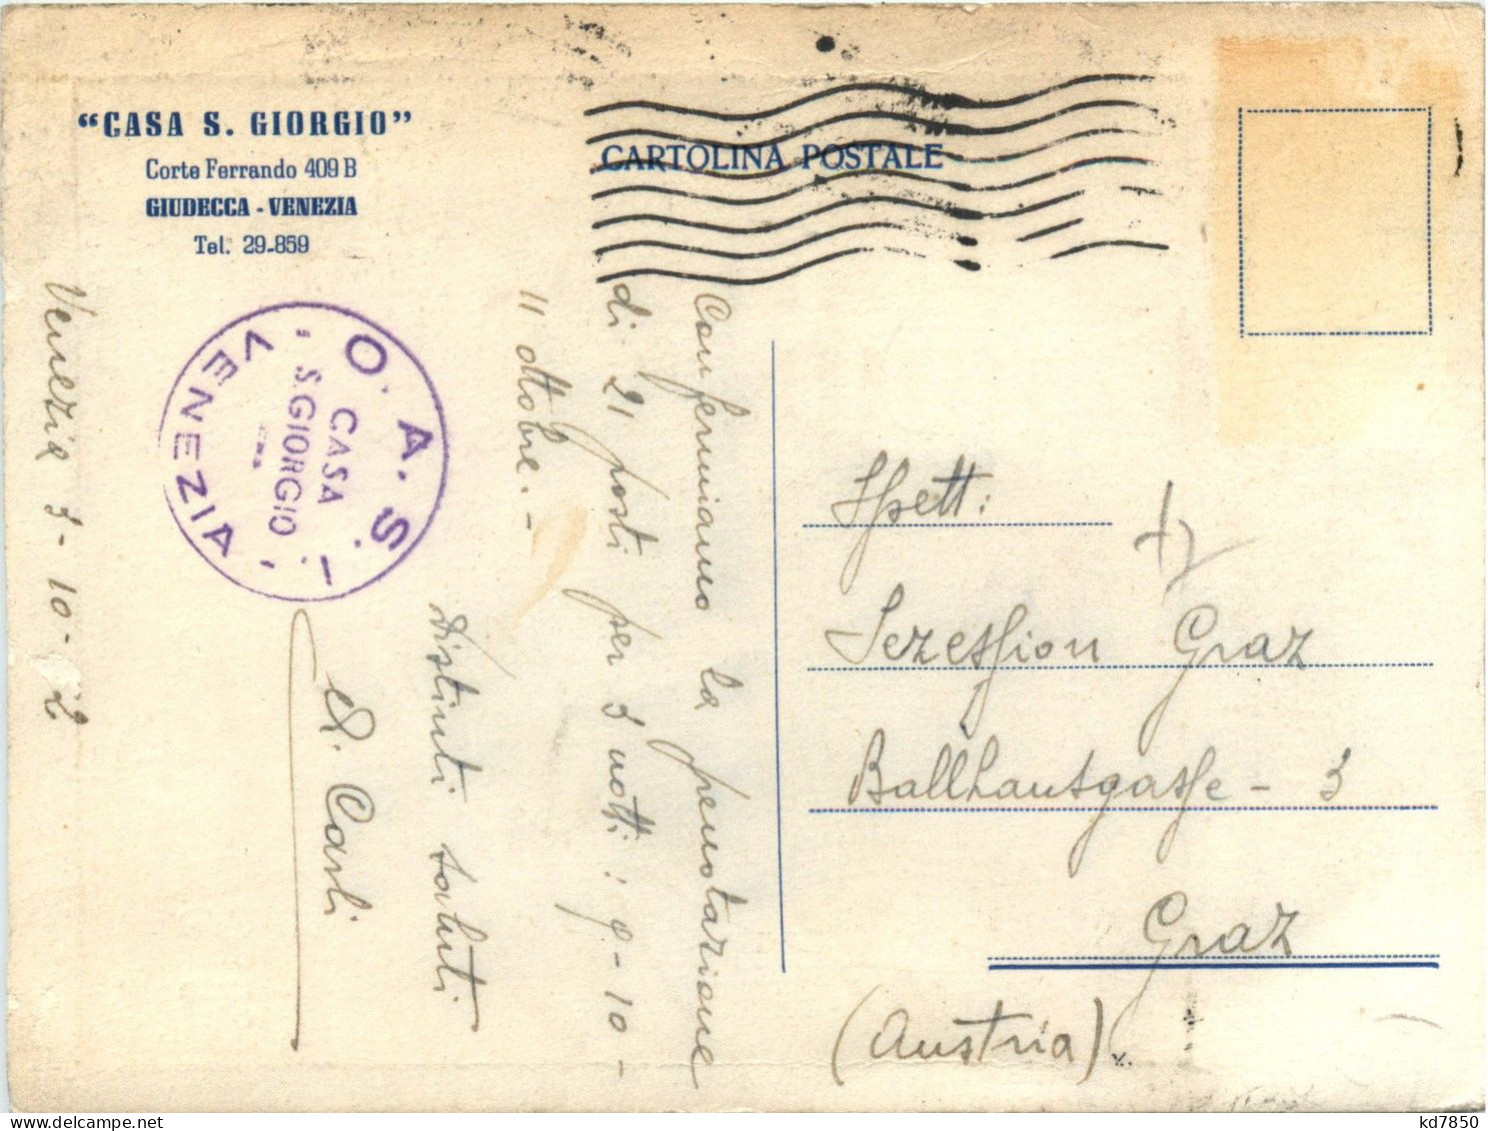 “CASA S. GIORGIO”
Corte Ferrando 409 B
GIUDECCA - VENEZIA
Tel. 29-859
CARTOLINA POSTALE
O. A. S. I. - VENEZIA -
"CASA
S. GIORGIO"
Venezia 3-10-
Confermiamo la prenotazione
di 21 posti per 3 notti: 9-10-
11 ottobre. -
Distinti saluti
Carli
Spett:
Sezession Graz
Ballhausgasse - 3
Graz
(Austria).
kd7850